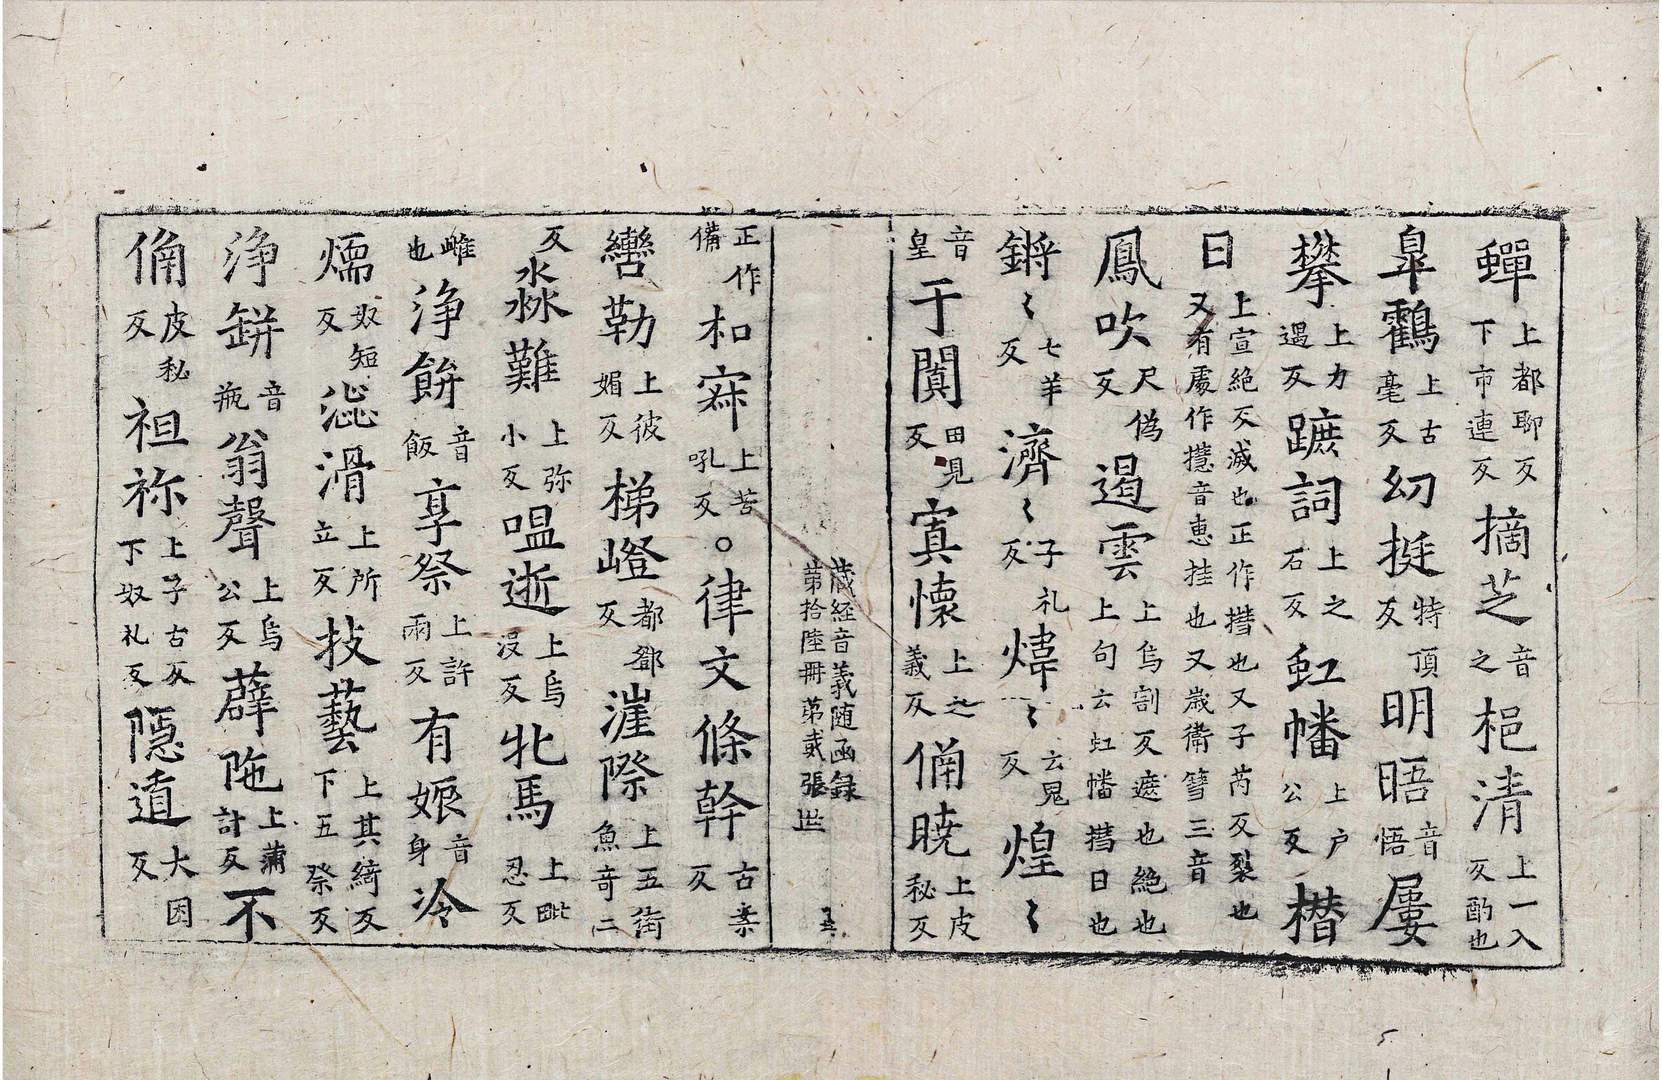 蟬上都聊反下市連反摘芝音之挹清上一入反酌也
皐鸖上古毫反幻挺特頂反明晤音悟屢
攀上力遇反蹠詞上之石反虹幡上户公反㩉
日上宣絶反滅也正作㩨也又子芮反裂也又有處作㩨音惠挂也又歲衛篲三音
鳳吹尺偽反遏雲上烏割反遮也絶也上句云虹幡㩨日也
鏘〻七羊反濟〻子礼反煒〻云鬼反煌〻
音皇于闐田見反寘懷上之義反俻曉上皮秘反
藏経音義随函録
第拾陸冊第貳張世
正作備和㝩上苦吼反。律文條幹古案反
轡勒上彼媚反梯嶝都鄧反漄際上五街魚奇二
反淼難上弥小反嗢逝上烏沒反牝馬上毗忍反
雌也浄餅音飯享祭上許兩反有娠音身冷
煗奴短反澁滑上所立反技藝上其綺反下五祭反
浄缾音瓶翁聲上烏公反薜陁上蒲計反不
俻皮秘反祖祢上子古反下奴礼反隠遁大困反